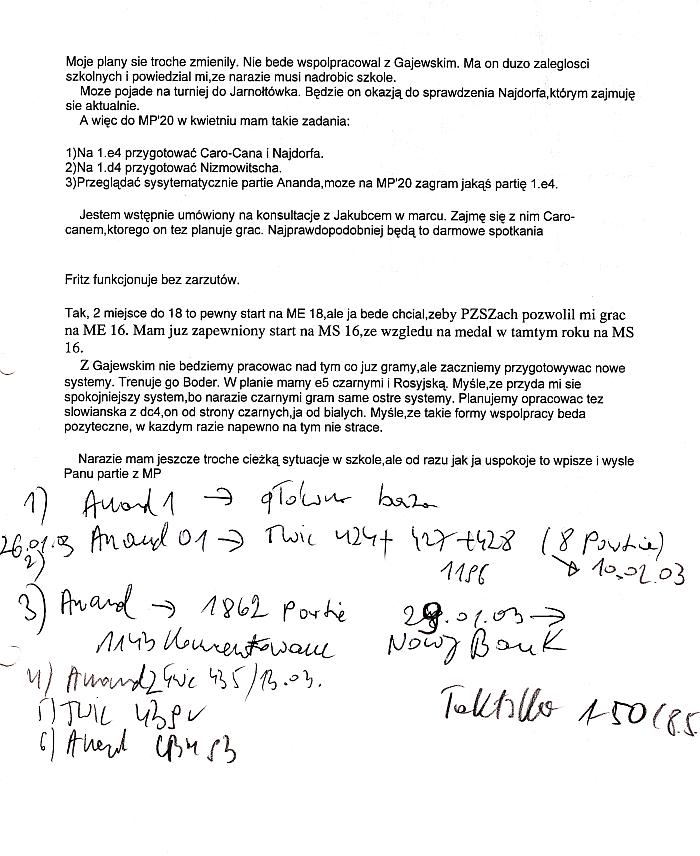 Moje plany sie troche zmienily. Nie bede wspolpracowal z Gajewskim. Ma on duzo zaleglosci
szkolnych i powiedzial mi,ze narazie musi nadrobic szkole.
Moze pojade na turniej do Jarnołtówka. Będzie on okazją do sprawdzenia Najdorfa,którym zajmuję
sie aktualnie.
A więc do MP'20 w kwietniu mam takie zadania:
1)Na 1.e4 przygotować Caro-Cana i Najdorfa.
2)Na 1.d4 przygotować Nizmowitscha.
3)Przeglądać sysytematycznie partie Ananda,moze na MP'20 zagram jakąś partię 1.e4.
Jestem wstępnie umówiony na konsultacje z Jakubcem w marcu. Zajmę się z nim Caro-
canem,ktorego on tez planuje grac. Najprawdopodobniej będą to darmowe spotkania
Fritz funkcjonuje bez zarzutów.
Tak, 2 miejsce do 18 to pewny start na ME 18,ale ja bede chcial,zeby PZSZach pozwolil mi grac
na ME 16. Mam juz zapewniony start na MS 16,ze wzgledu na medal w tamtym roku na MS
16.
Z Gajewskim nie bedziemy pracowac nad tym co juz gramy,ale zaczniemy przygotowywac nowe
systemy. Trenuje go Boder. W planie mamy e5 czarnymi i Rosyjską. Myśle,ze przyda mi sie
spokojniejszy system,bo narazie czarnymi gram same ostre systemy. Planujemy opracowac tez
slowianska z dc4,on od strony czarnych,ja od bialych. Myśle,ze takie formy wspolpracy beda
pozyteczne, w kazdym razie napewno na tym nie strace.
Narazie mam jeszcze troche cieżką sytuacje w szkole,ale od razu jak ja uspokoje to wpisze i wysle
Panu partie z MP
1) Anand 1 → główna baza
26.01.03 Anand 01 → Twic 424+ 427+428 (8 Partie)
2) 1196 → 10.02.03
3) Anand → 1862 Partie 29.01.03 →
1143 Komentowane Nowy Bank
4) Anand2 Twic 435/13.03.
5) TWIC 439 v
6) Anand
150